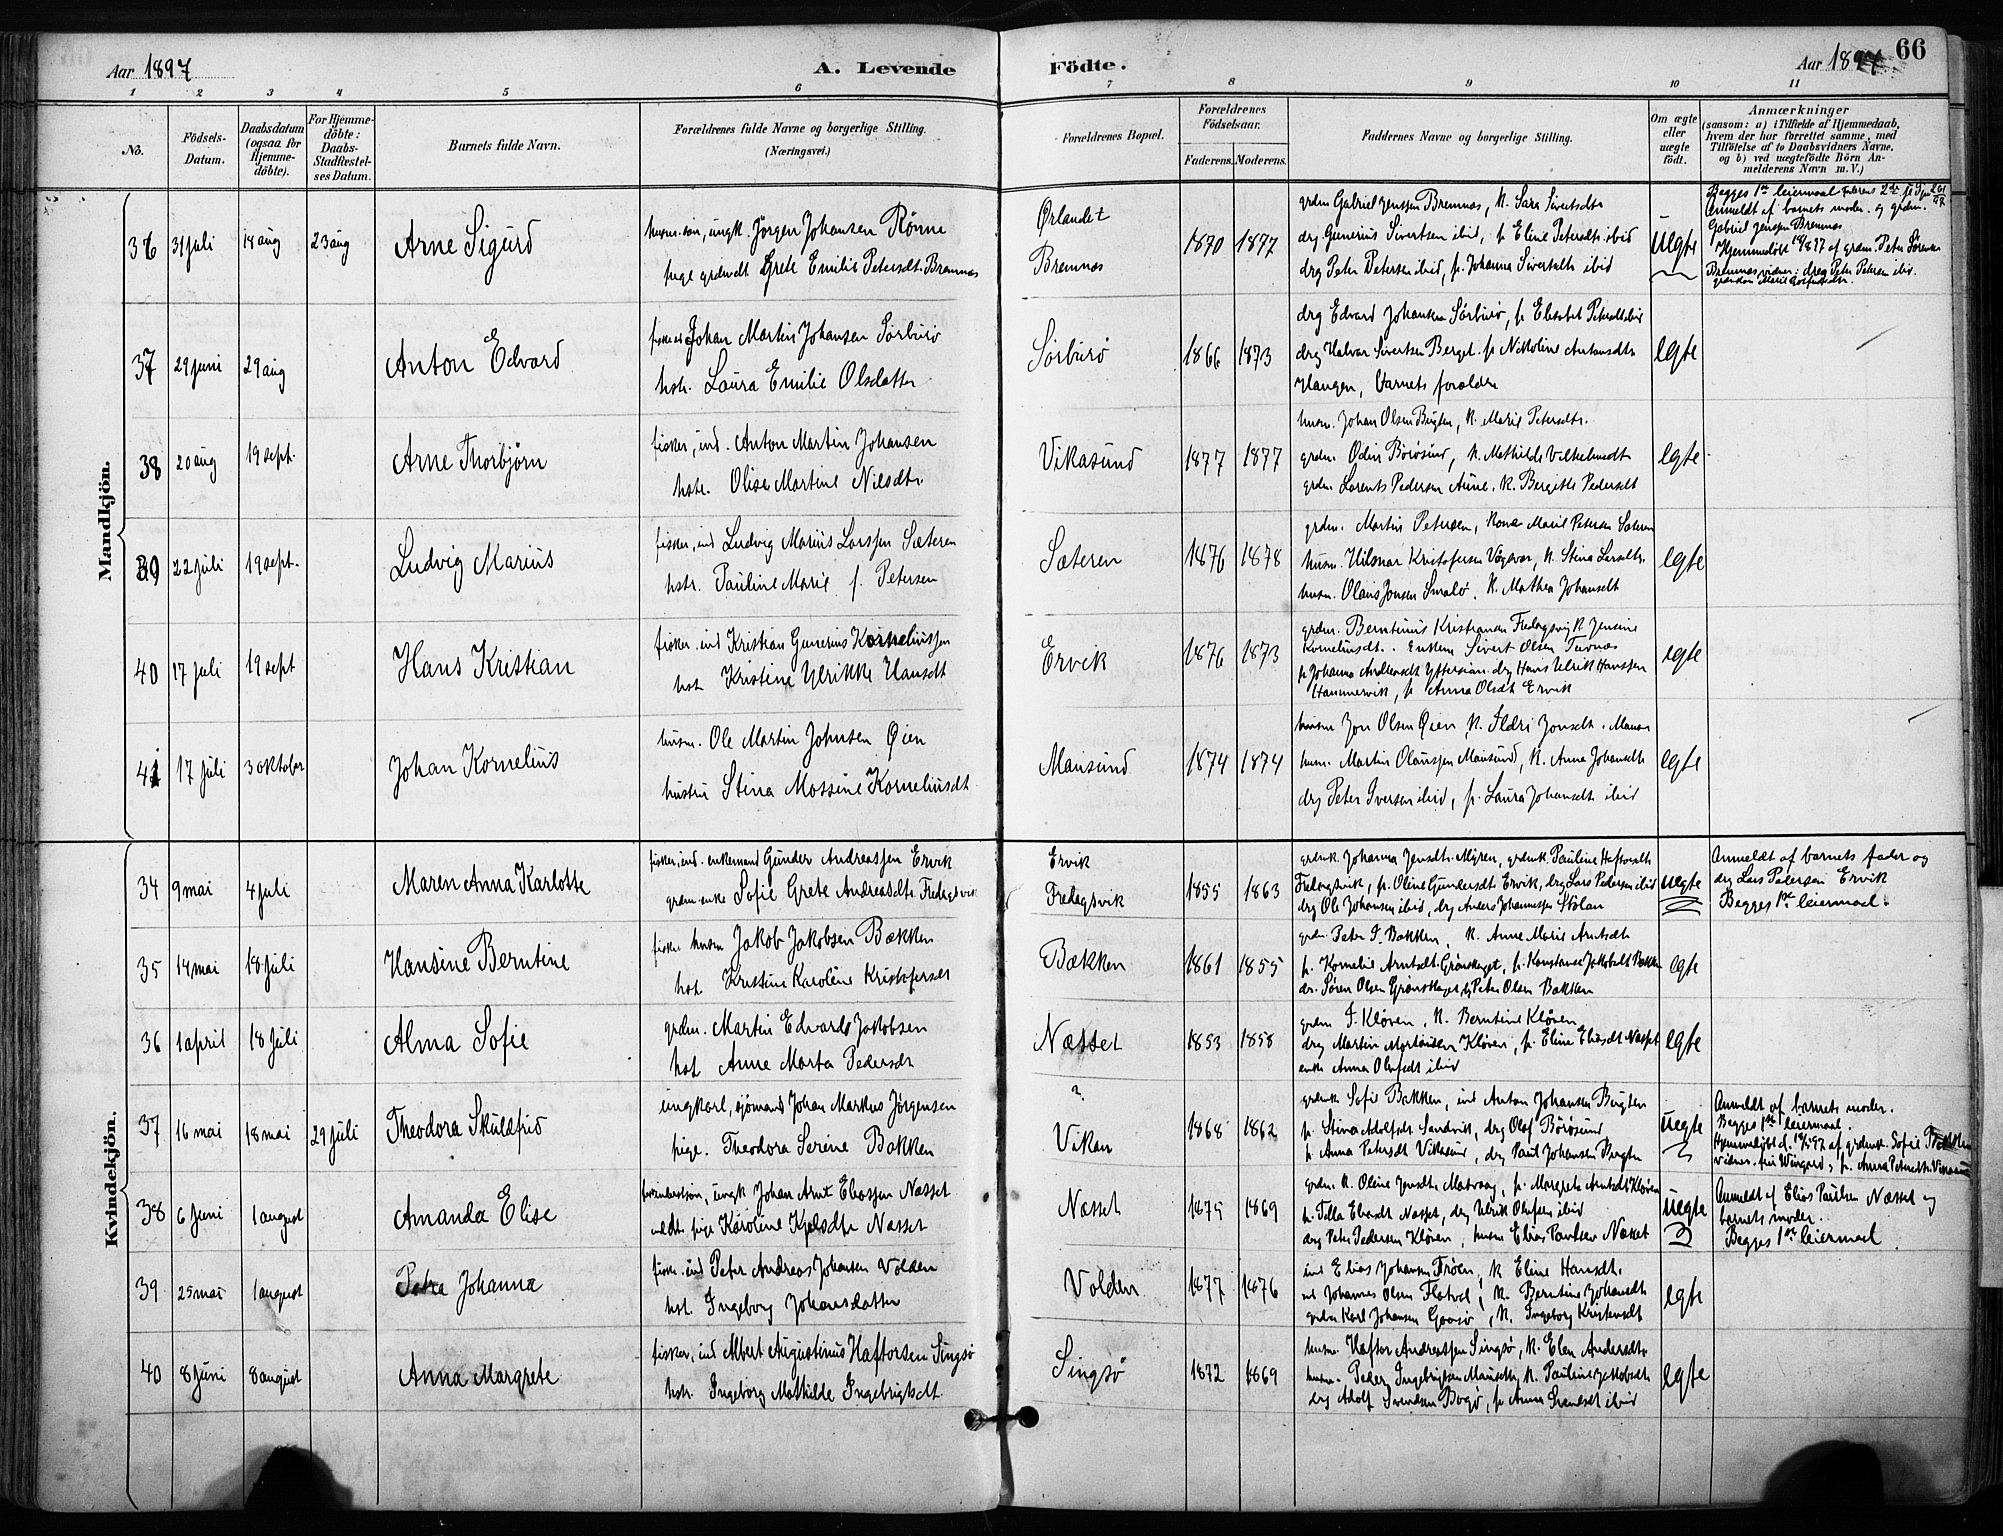 Aar 1897
A. Levende Födte.
Aar 1897
66
1 2 3 4 5 6 7 8 9 10 11
No.
Födsels-Datum.
Daabsdatum (ogsaa for Hjemme-döbte).
For Hjemme-döbte: Daabs-Stadfæstel-ses Datum.
Barnets fulde Navn.
Forældrenes fulde Navne og borgerlige Stilling. (Næringsvei.)
Forældrenes Bopæl.
Forældrenes Födselsaar.
Faderens. Moderens.
Faddernes Navne og borgerlige Stilling.
Om ægte eller uægte födt.
Anmærkninger
(saasom: a) i Tilfælde af Hjemmedaab, hvem der har forrettet samme, med Tilföielse af to Daabsvidners Navne, og b) ved uægtefödte Börn An-melderens Navn m. V.)
Mandkjön.
36 31 juli 18 aug 23 aug Arne Sigurd
husm. sön, ungk. Jörgen Johansen Rönne
pige grdmdt Grete Emilie Petersdt. Bremnæs
Ørlandet
Bremnæs
1870 1877
grdm Gabriel Jenssen Bremnæs, K. Sara Sivertsdtr
drg Gunerius Sivertsen ibid, p. Eline Petersdtr ibid
drg Peter Petersen ibid, p. Johanna Sivertsdtr ibid
uegte
Begges 1ste leiermaal
Anmeldt af barnets moder og grdm.
Gabriel Jenssen Bremnæs
Hjemmedöbt 18/8 97 af grdm. Peter Sörensen
Bremnæs vidner: dreng Peter Petersen ibid.
37 29 juni 29 aug Anton Edvard
Johan Martin Johansen Sörburö
hstr. Laura Emilie Olsdatter
Sörburö
1866 1873
drg Edvard Johansen Sörburö, p. Elisabet Petersdt ibid
drg Halvor Sivertsen Berget. p Nikoline Antonsdtr
Haugen, Barnets forælder
egte
38 20 aug 19 sept. Arne Thorbjörn
fisker, ind. Anton Martin Johansen
hstr. Olise Martine Nilsdtr.
Vikasund
1877 1877
husm. Johan Olsen Bugten, K. Marie Petersdtr.
grdm. Odin Börösund, K. Mathilde Vilhelmsdt.
grdm. Lorents Pedersen Aune, K. Bergitte Pedersdt
egte
39 22 juli 19 sept. Ludvig Marius
fisker, ind Ludvig Marius Larssen Sæteren
hstr. Pauline Marie f. Petersen
Sæteren
1876 1878
grdm. Martin Petersen, Kone Marie Petersen Sæteren
husm. Hilmar Kristofersen Vågøvær, K. Stina Larsdtr.
husm. Olaus Jonsen Smalö, K. Mathea Johansdt
egte
40 17 juli 19 sept Hans Kristian
fisker. ind Kristian Gunerius Korneliussen
hst. Kristine Ulrikke Hansdt
Ervik
1876 1873
grdm. Berntinus Kristiansen Fredagsvig K. Jensine
Korneliusdt. Enkem Sivert Olsen Tuvnæs
p Johanna Andreasdt Yttersian drg Hans Ulrik Hanssen
Hammervik, p. Anna Olsdt Ervik
egte
41 17 juli 3 oktober Johan Kornelius
husm. Ole Martin Johnsen Øien
hustru Stina Mossine Korneliusdt
Mausund
1874 1874
husm Jon Olsen Øien, K. Ildri Jonsdt.
husm. Martin Olaussen Mausund, K. Anne Johansdtr
drg Peter Iversen ibid, p. Laura Johansdt ibid
egte
Kvindekjön.
34 9 mai 4 juli Maren Anna Karlotte
fisker, ind. enkemand Gunder Andreassen Ervik
grdm enke Sofie Grete Andreasdtr Fredagsvik
Ervik
Fredagsvik
1855 1863
grdmk. Johanna Jensdt. Myren, grdmk. Pauline Haftorsdtr
Fredagsvik, p. Oline Gundersdt Ervik, drg Lars Pedersen ibid
drg Ole Johansen ibid, drg Anders Johannessen Stölan
uegte
Anmeldt af barnets fader og
drg Lars Pedersen Ervik
Begges 1ste leiermaal.
35 14 mai 18 juli Hansine Berntine
fisker husm Jakob Jakobsen Bækken
hst. Kristine Karoline Kristofersdt
Bækken
1861 1855
grdm. Peter J. Bakken, K. Anne Marie Arntsdt
p. Kornelie Arntsdt. Grönskaget, p. Konstance Jakobsdt Bækken
dr. Sören Olsen Grönskaget, drg Peter Olsen Bakken
egte
36 1 april 18 juli Alma Sofie
grdm. Martin Edvard Jakobsen
hst. Anne Marta Pedersdt
Næsset
1853 1858
grdm J. Klöven, K. Berntine Klöven
drg Martin Mortensen Klöven, p. Eline Eliasdt Næsset
enke Anna Olufsdt ibid
egte
37 16 mai 18 mai 29 juli Theodora Skuldfrid
ungkarl, sjömand Johan Markus Jörgensen
pige. Theodora Serine Bakken
?
Vikan
1868 1862
grdmk Sofie Bakken, ind Anton Johansen Bugten
p. Stina Adolfsdt Sandvik, drg Olaf Börösund
p. Anna Petersdt Vikasund, drg Paul Johansen Bugten
uegte
Anmeldt af barnets moder.
Begges 1ste leiermaal.
Hjemmedöbt d. 18/5 97 af grdmk. Sofie Bakken
vidner: fru Wingard, p. Anna Petersdtr. Vikasund
38 6 juni 1 august Amanda Elise
ungk Johan Arnt Eliassen Næsset
pige Karoline Næsset
Næsset
1875 1869
grdm. K. Oline Jensdt. Matvaag, p. Margrete Arntsdt Klöven
p. Tilla Eliasdt Næsset, drg Ulrik Olufsen ibid
drg Peter Pedersen Klöven, husm Elias Paulsen Næsset
uegte
Anmeldt af Elias Paulsen Næsset og
barnets moder.
Begges 1ste leiermaal.
39 25 mai 1 august Petra Johanna
fisker. ind Peter Andreas Johansen Volden
hst. Ingeborg Johansdatter
Volden
1877 1876
ind Elias Johansen Fröen, K Eline Hansdt.
Johannes Olsen Flatval, K. Berntine Johansdt
grdm Karl Johansen Gaasö, K. Ingeborg Kristensdt
egte
40 8 juni 8 august Anna Margrete
fisker, ind Albert Augustinus Haftorsen Singsö
hstr. Ingeborg Mathilde Ingebrigtsdt.
Singsö
1872 1869
husm. Haftor Andreassen Singsö, K. Elen Andersdtr
husm. Peder Ingebrigtsen K. Pauline Jakobsdt
drg Adolf Svendsen Bogö, p. Anna ibid
egte